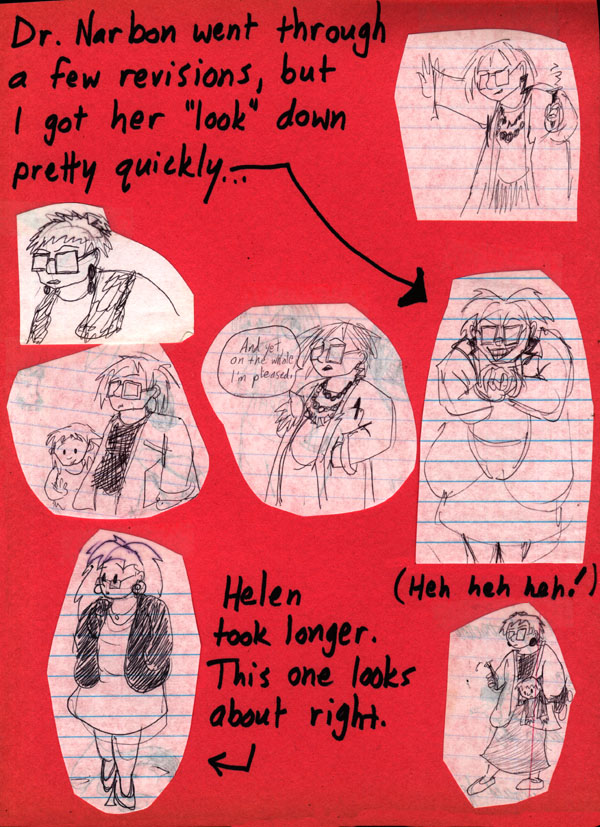 Dr. Narbon went through
a few revisions, but
I got her "look" down
pretty quickly...
And yet,
on the whole
I'm pleased.
(Heh heh heh!)
Helen
took longer.
This one looks
about right.